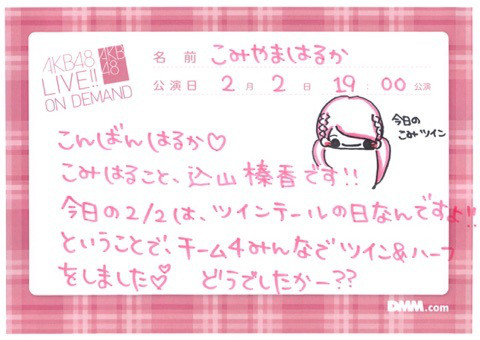 AKB48
LIVE!!
ON DEMAND
AKB
48
名前 こみやまはるか
公演日 2月2日 19:00公演
今日の
こみツイン
こんばんはるか♡
こみはること、込山榛香です!!
今日の2/2は、ツインテールの日なんですよ!!
ということで、チーム4みんなでツイン&ハーフ
をしました♡ どうでしたかー??
DMM.com